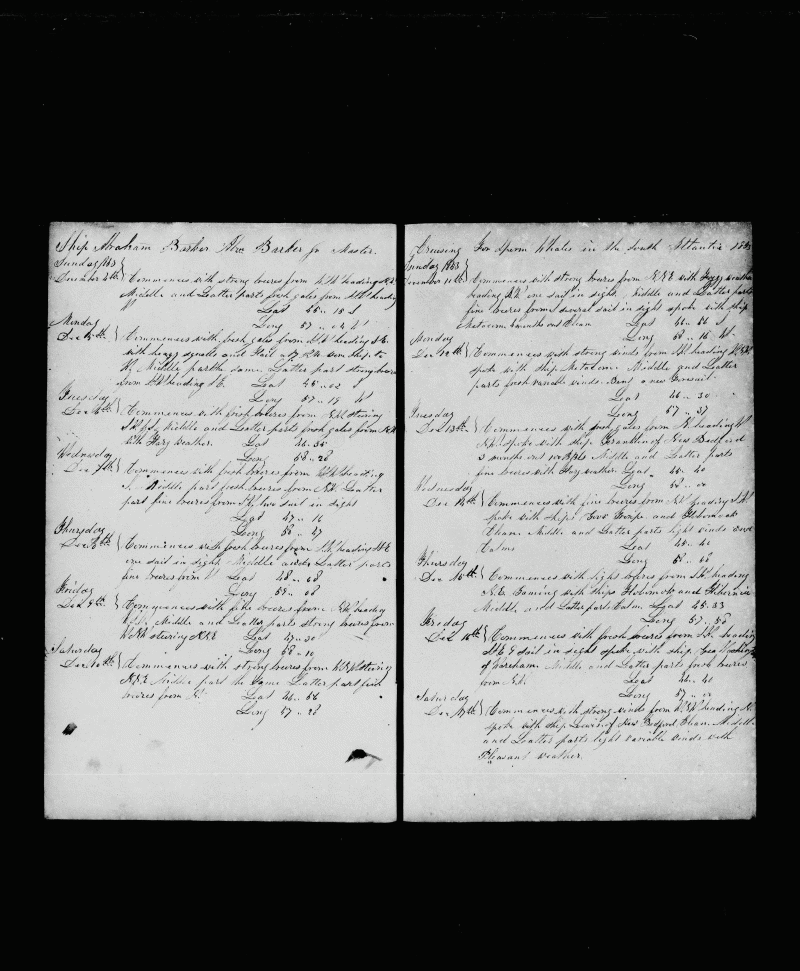 Ship Abraham Barker Master.
Sunday 1843
December 4th Commences with strong breeses from heading
Middle and Latter parts fresh gales from heading
Lat 45 .. 15 S
Long 57 .. W
Monday
Dec 5th Commences with fresh gales from SW heading SE
with heavy squalls and Hail at ship to
the Middle part the same. Latter part strong breeses
from heading SE Lat 45 .. 02 S
Long 57 .. 19 W
Tuesday
Dec 6th Commences with fresh breeses from steering
Middle and Latter parts fresh gales from
with Hazy weather. Lat 46 .. 35
Long 58 .. 28
Wednesday
Dec 7th Commences with fresh breeses from heading
Middle part fresh breeses from Latter
part fine breeses from two sail in sight
Lat 47 .. 16
Long 58 .. 27
Thursday
Dec 8th Commences with fresh breeses from heading
one sail in sight, Middle and Latter parts
fine breeses from Lat 48 .. 08
Long 59 .. 08
Friday
Dec 9th Commences with fine breeses from heading
Middle and Latter parts strong breeses from
steering NNE Lat 47 .. 30
Long 58 .. 10
Saturday
Dec 10th Commences with strong breeses from steering
NNE Middle part the same Latter part fine
breeses from Lat 46 .. 56
Long 57 .. 28
Cruising for Sperm Whales in the South Atlantic 1843
Sunday 1843
December 11th Commences with strong breeses from NNE with foggy weather
heading one sail in sight. Middle and Latter parts
fine breeses from several sail in sight spoke with ship
Metacom months out Clean Lat 46 .. S
Long 58 .. 16 W
Monday
Dec 12th Commences with strong winds from heading
spoke with ship Metacom. Middle and Latter
parts fresh variable winds. Bent a new
Lat 46 .. 30
Long 57 .. 37
Tuesday
Dec 13th Commences with fresh gales from heading
spoke with ship Franklin of New Bedford
months out Middle and Latter parts
fine breeses with Hazy weather. Lat 45 .. 40
Long 58 .. 00
Wednesday
Dec 14th Commences with fine breeses from heading
spoke with ships and Hobomok
Clean Middle and Latter parts light winds and
Calms Lat 45 .. 41
Long 58 .. 08
Thursday
Dec 15th Commences with light breses from heading
N.E. Gaming with ships Hobomok and Hibernia
Middle and Latter parts Calm Lat 45 .. 33
Long 57 .. 50
Friday
Dec 16th Commences with fresh breeses from heading
sail in sight spoke with ship Geo Washington
of Wareham. Middle and Latter parts fresh breeses
from Lat 46 .. 41
Long 57 ..
Saturday
Dec 17th Commences with strong winds from heading
spoke with ship of New Bedford, Clean. Middle
and Latter parts light variable winds with
Pleasant weather.